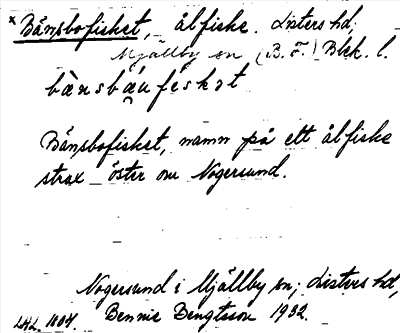 × Bånsbofisket, ålfiske. Listers hd,
Mjällby sn (B. F.) Blek. l.
bànsbəufeskət
Bånsbofisket, namn på ett ålfiske
strax öster om Nogersund.
Nogersund i Mjällby sn; Listers hd,
LAL. 1104. Bennie Bengtsson 1932.